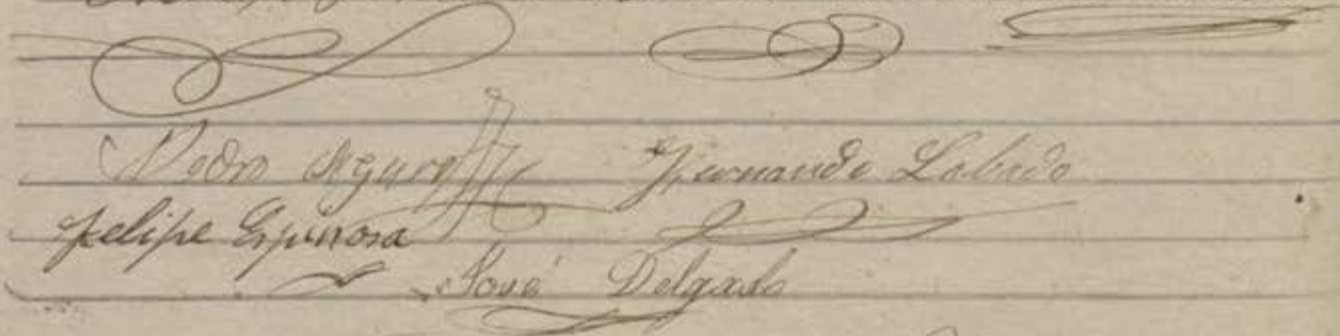 Pedro Segura Fernando Labado
Felipe Espinosa
José Delgado